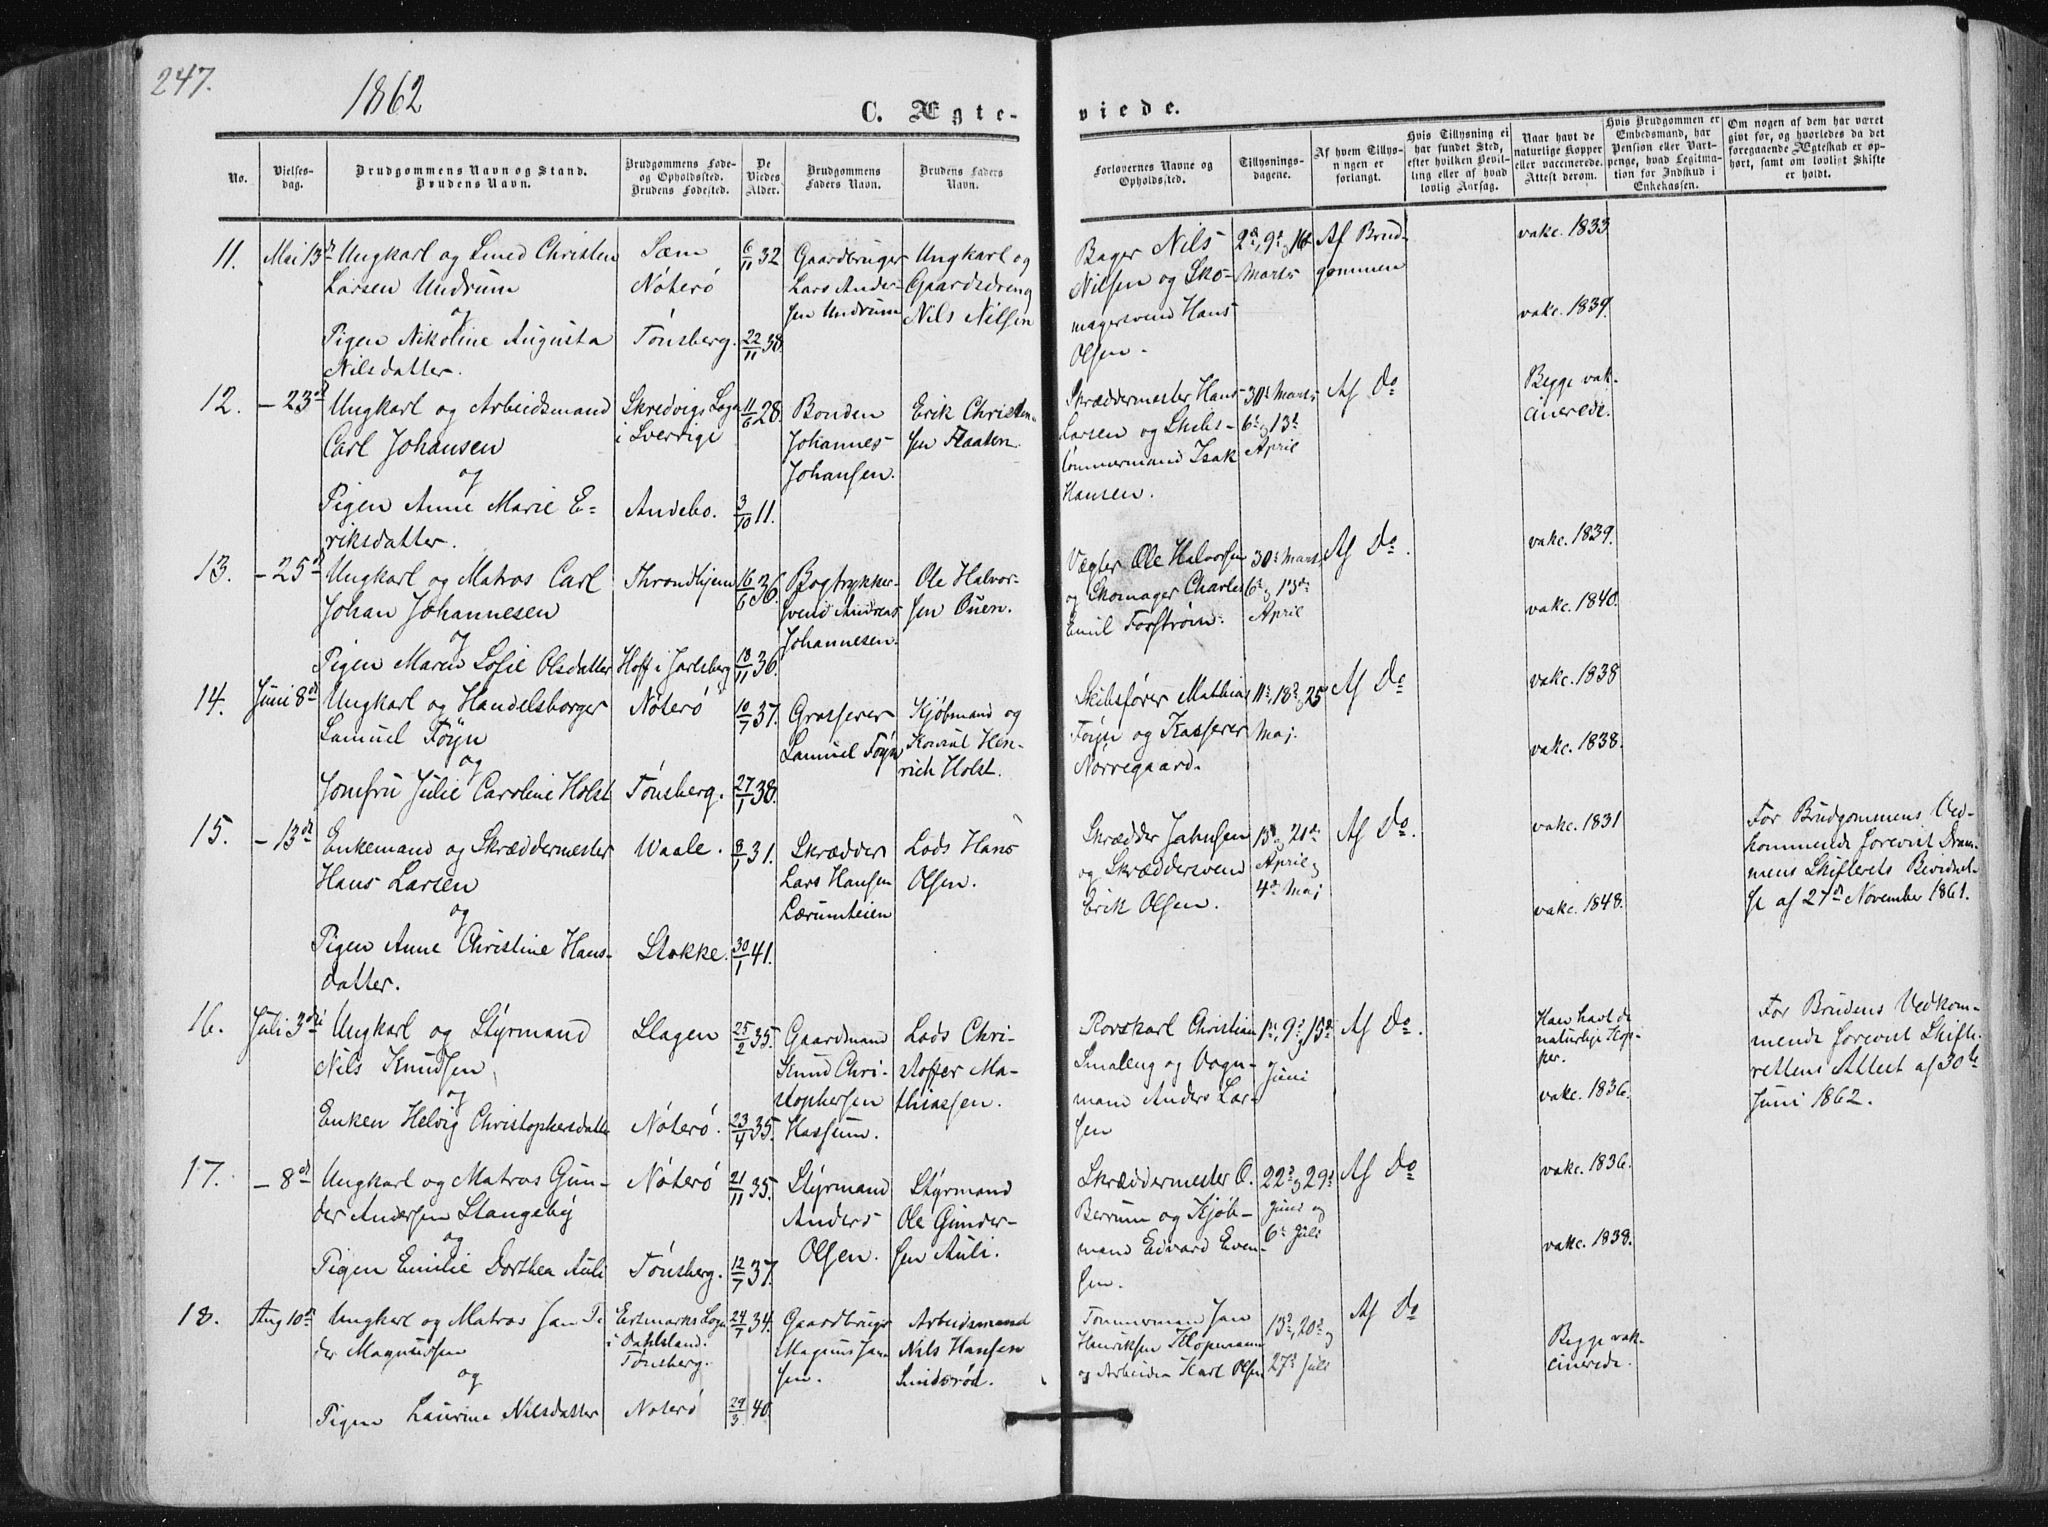 247.
1862
C. Ægte-
viede.
No.
Vielses-
dag.
Brudgommens Navn og Stand.
Brudens Navn.
Brudgommens Føde-
og Opholdssted.
Brudens Fødested.
De
Viedes
Alder.
Brudgommens
Faders Navn.
Brudens Faders
Navn.
Forlovernes Navne og
Opholdssted.
Tillysnings-
dagene.
Af hvem Tillys-
ningen er
forlangt.
Hvis Tillysning ei
har fundet Sted,
efter hvilken Bevil-
ling eller af hvad
lovlig Aarsag.
Naar havt de
naturlige Kopper
eller vaccinerede.
Attest derom.
Hvis Brudgommen er
Embedsmand, har
Pension eller Vart-
penge, hvad Legitima-
tion for Indskud i
Enkekassen.
Om nogen af dem har været
givt før, og hvorledes da det
foregaaende Ægteskab er op-
hørt, samt om lovligt Skifte
er holdt.
11.
Mai 13de
Ungkarl og Smed Christen
Larsen Undrum
og
Pigen Nikoline Augusta
Nilsdatter.
Sæm
Nøterø
Tønsberg.
6/11 32
22/11 38.
Gaardbruger
Lars Ander-
sen Undrum
Ungkarl og
Gaardsdreng
Nils Nilsen
Bager Nils
Nilsen og Sko-
magersvend Hans
Olsen.
2d, 9d og 16d
Marts
Af Brud-
gommen
vakc. 1833
vakc. 1839.
12.
- 23de
Ungkarl og Arbeidsmand
Carl Johansen
og
Pigen Anne Marie E-
riksdatter.
Skredvigs Sogn
i Sverrige
Andebo.
11/6 28.
3/10 11.
Bonden
Johannes
Johansen.
Erik Christen-
sen Flaaten
Skræddermester Hans
Larsen og Skibs-
tømmermand Isak
Hansen.
30d Marts
6d og 13d
April
Af Do
Begge vak-
cinerede.
13.
- 25de
Ungkarl og Matros Carl
Johan Johannesen
og
Pigen Maren Sofie Olsdatter
Throndhjem
Hoff i Jarlsberg
16/6 36.
18/11 36.
Bogtrykker-
svend Andreas
Johannesen.
Ole Halvor-
sen Ouen.
Vægter Ole Halvorsen
og Skomager Charles
Emil Forstrøm.
30d Marts
6d og 13de
April
Af Do.
vakc. 1839.
vakc. 1840.
14.
Juni 8de
Ungkarl og Handelsborger
Samuel Føyn
og
Jomfru Julie Caroline Holst
Nøterø
Tønsberg.
10/7 37.
27/1 38.
Grosserer
Samuel Føyn
Kjøbmand og
Konsul Hen-
rich Holst.
Skibsfører Mathias
Føyn og Kasserer
Norregaard.
11d, 18d og 25
Maj.
Af Do
vakc. 1838
vakc. 1838.
15.
- 13de
Enkemand og Skræddermester
Hans Larsen
og
Pigen Anne Christine Hans-
datter.
Waale.
Stokke.
8/1 31.
30/1 41.
Skrædder
Lars Hansen
Lærumteien
Lods Hans
Olsen.
Skrædder Jahnsen
og Skræddersvend
Erik Olsen.
13d og 21de
April og
4de Maj
Af Do.
vakc. 1831
vakc. 1848.
For Brudgommens Ved-
kommende forevist Dram-
mens Skifterets Bevidnel-
se af 27de November 1861.
16.
Juli 3die
Ungkarl og Styrmand
Nils Knudsen
og
Enken Helvig Christophersdatter
Slagen
Nøterø.
25/2 35.
23/4 35.
Gaardmand
Knud Chri-
stophersen
Hassum.
Lods Chri-
stoffer Ma-
thiassen.
Rorskarl Christian
Smaleng og Vogn-
mand Anders Lar-
sen
1d, 9d og 15d
Juni
Af Do.
Han havt de
naturlige Kop-
per.
vakc. 1836.
For Brudens Vedkom-
mende forevist Skifte-
rettens Attest af 30te
Juni 1862.
17.
- 8de
Ungkarl og Matros Gun-
der Andersen Stangeby
og
Pigen Emilie Dorthea Auli
Nøterø
Tønsberg.
21/11 35.
12/7 37.
Styrmand
Anders
Olsen.
Styrmand
Ole Gunder-
sen Auli.
Skræddermester O.
Berrum og Kjøb-
mand Edvard Even-
sen.
22d og 29d
Juni og
6d Juli
Af Do
vakc. 1836.
vakc. 1838.
18.
Aug 10de
Ungkarl og Matros Jan Pe-
der Magnussen
og
Pigen Laurine Nilsdatter
Ertmarks Sogn
i Dahlsland.
Tønsberg.
Nøterø
24/7 34.
29/3 40.
Gaardbruger
Magnus Jan-
sen.
Arbeidsmand
Nils Hansen
Smidsrød.
Tømmermand Jan
Henriksen Klopmann
og Arbeider Karl Olsen
13d, 20d og
27d Juli
Af Do
Begge vak-
cinerede.